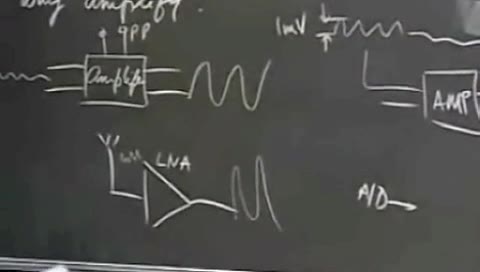 Why amplify.
1mV
Amplifier
AMP
LNA
A/D